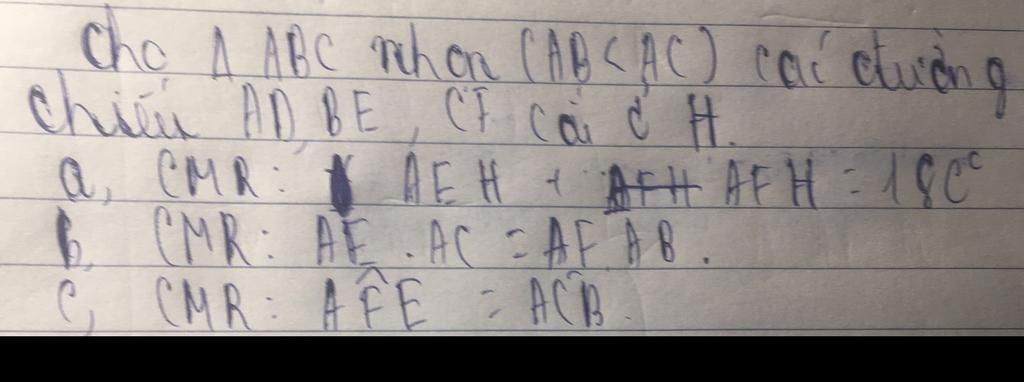 Cho Δ ABC nhọn (AB < AC) các đường
chiếu AD, BE, CF cắt ở H.
a, CMR: AEH + AFH = 180°
b, CMR: AE . AC = AF AB.
c, CMR: AF̂E = AĈB.